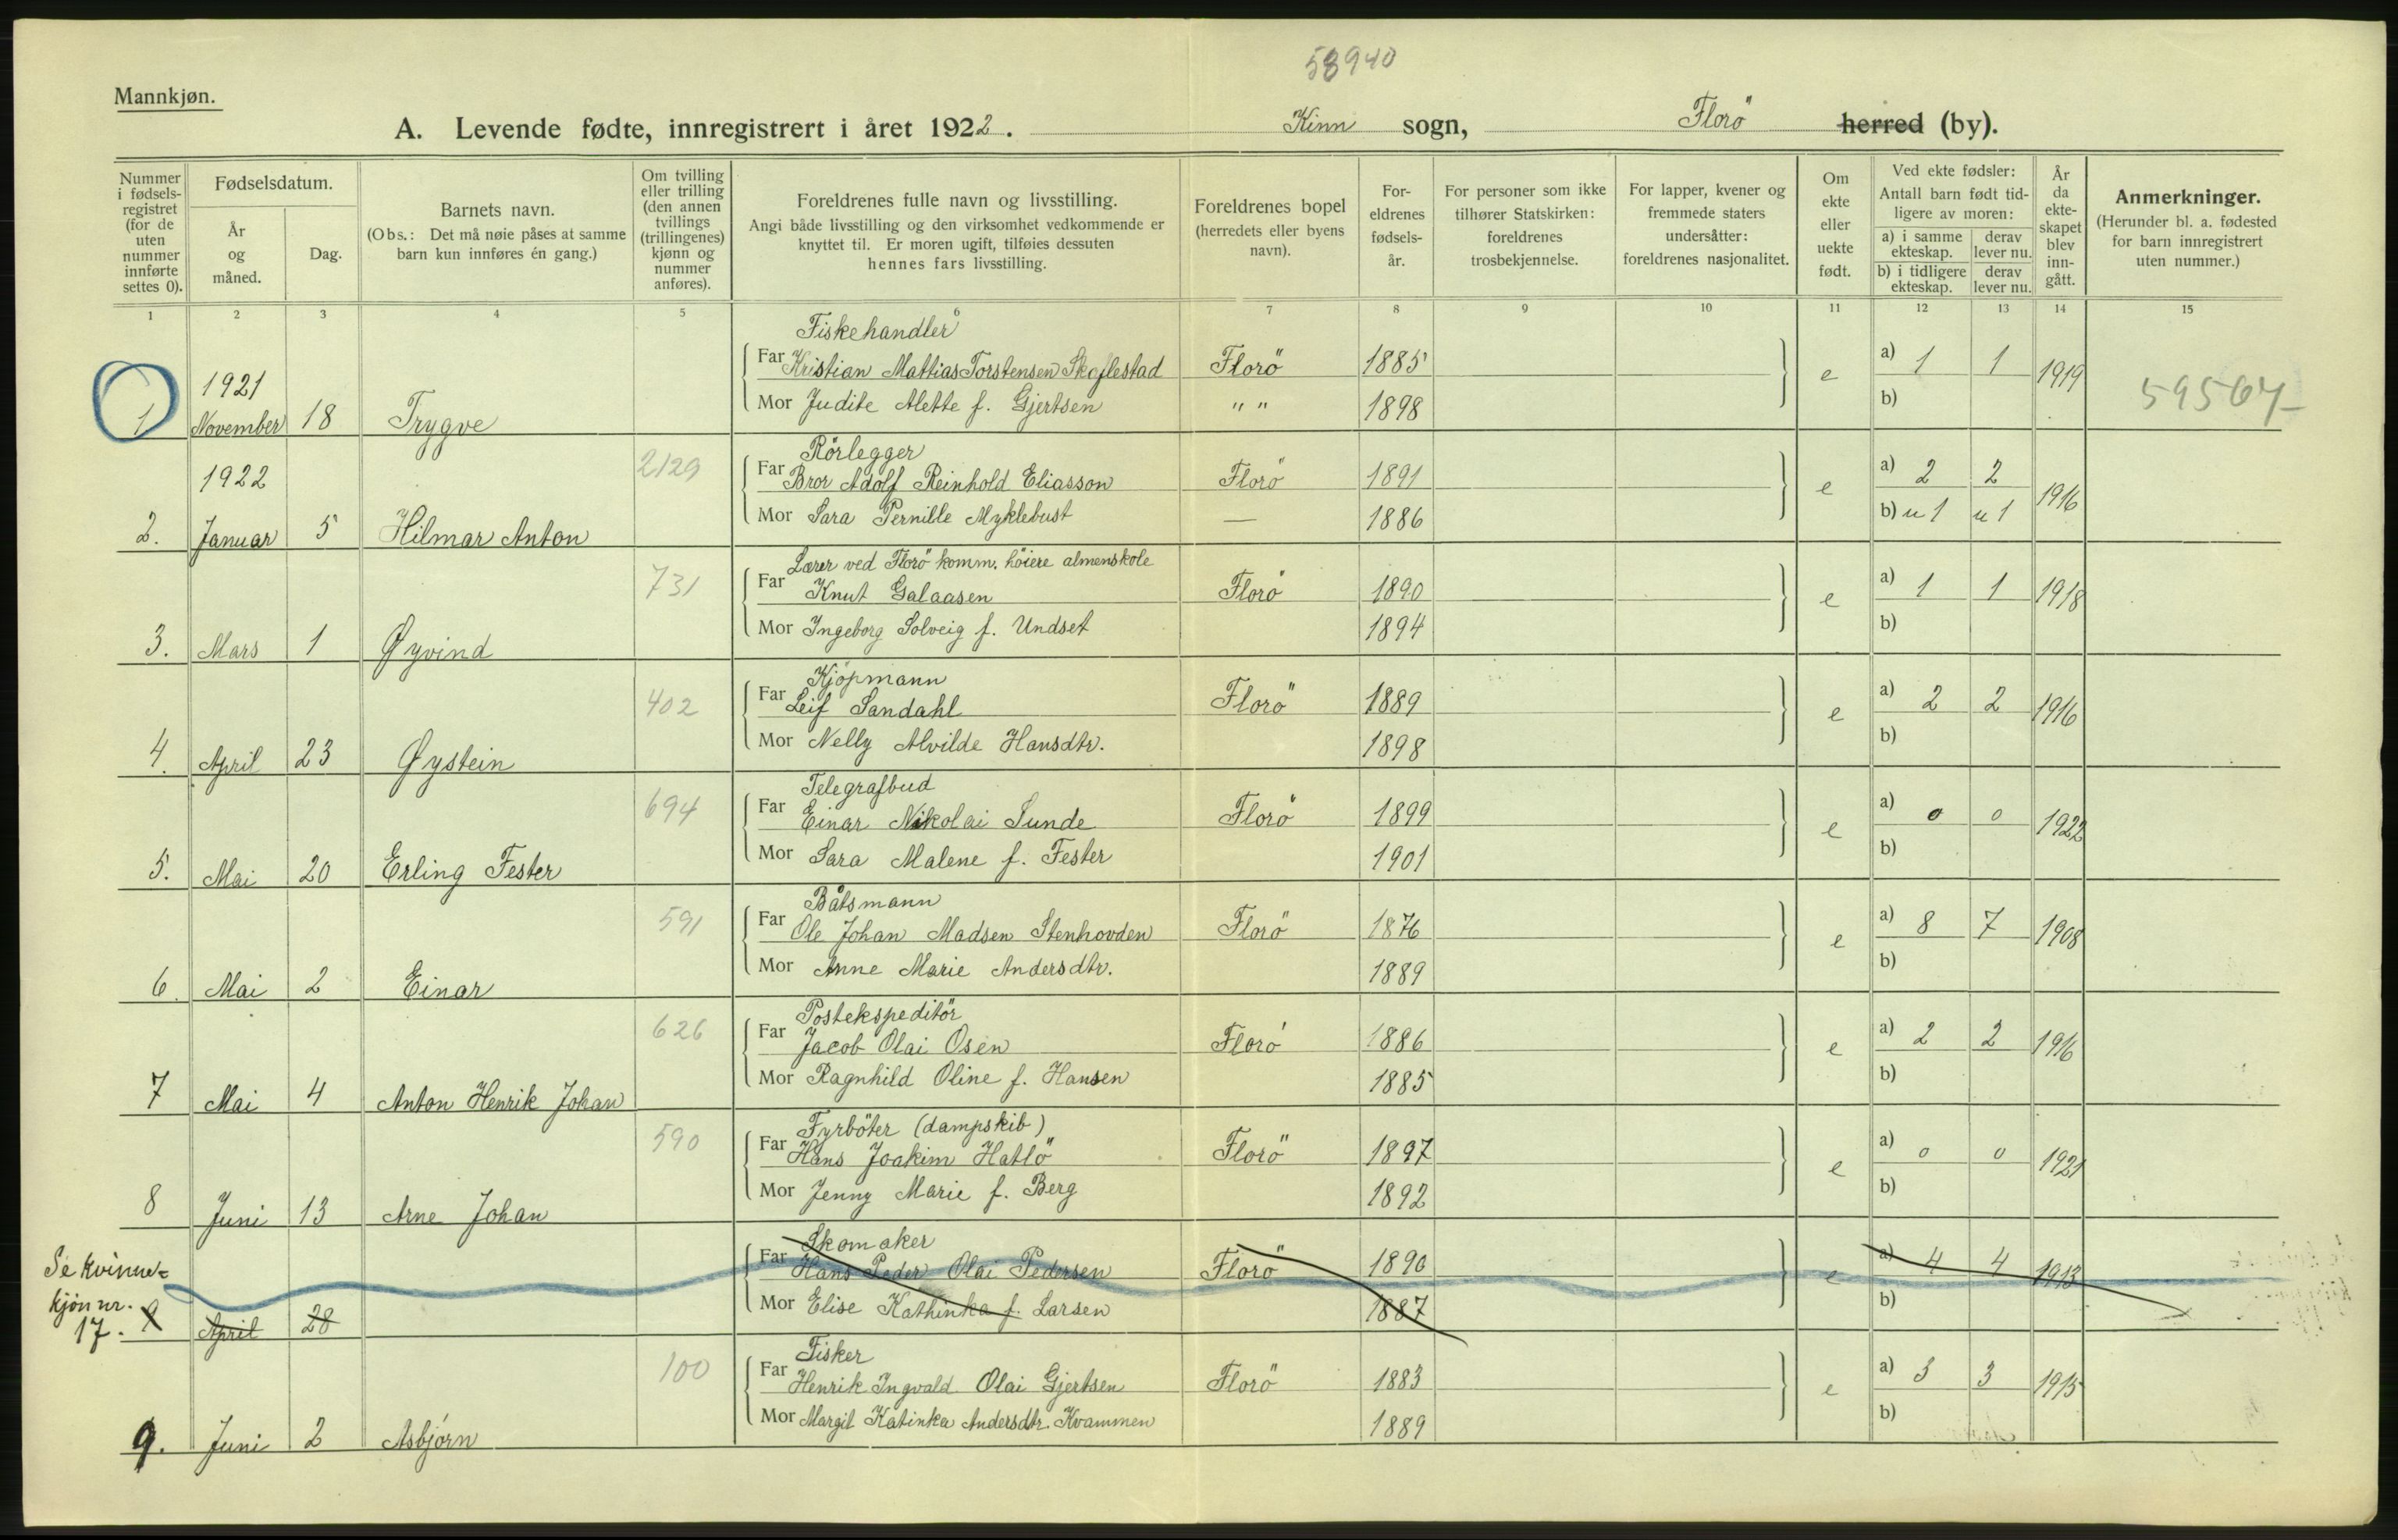 58940
Mannkjøn.
A. Levende fødte, innregistrert i året 1922. Kinn sogn, Florö herred (by).
Nummer i fødsels-registret (for de uten nummer innførte settes 0).
Fødselsdatum.
År og måned.
Dag.
Barnets navn.
(Obs.: Det må nøie påses at samme barn kun innføres én gang.)
Om tvilling eller trilling (den annen tvillings (trillingenes) kjønn og nummer anføres).
Foreldrenes fulle navn og livsstilling.
Angi både livsstilling og den virksomhet vedkommende er knyttet til. Er moren ugift, tilføies dessuten hennes fars livsstilling.
Foreldrenes bopel (herredets eller byens navn).
For-eldrenes fødsels-år.
For personer som ikke tilhører Statskirken: foreldrenes trosbekjennelse.
For lapper, kvener og fremmede staters undersåtter: foreldrenes nasjonalitet.
Om ekte eller uekte født.
Ved ekte fødsler: Antall barn født tid-ligere av moren:
a) i samme ekteskap. derav lever nu.
b) i tidligere ekteskap. derav lever nu.
År da ekte-skapet blev inn-gått.
Anmerkninger.
(Herunder bl. a. fødested for barn innregistrert uten nummer.)
1 2 3 4 5 6 7 8 9 10 11 12 13 14 15
Fiskehandler
Far Kristian Mattias Torstensen Skaflestad Florö 1885 a) 1 1
1 1921 November 18 Trygve e 1919 59567
Mor Judite Alette f. Gjertsen " " 1898 b)
Rörlegger
2129 Far Bror Adolf Reinhold Eliasson Florö 1891 a) 2 2
2. 1922 Januar 5 Hilmar Anton e 1916
Mor Sara Pernille Myklebust — 1886 b) u 1 u 1
Lærer ved Florö komm. höiere almenskole
731 Far Knut Galaasen Florö 1890 a) 1 1
3. Mars 1 Øyvind e 1918
Mor Ingeborg Solveig f. Undset 1894 b)
Kjöpmann
402 Far Leif Sandahl Florö 1889 a) 2 2
4. April 23 Øystein e 1916
Mor Nelly Alvilde Hansdtr. 1898 b)
Telegrafbud
694 Far Einar Nikolai Sunde Florö 1899 a) 0 0
5. Mai 20 Erling Fester e 1922
Mor Sara Malene f. Fester 1901 b)
Båtsmann
591 Far Ole Johan Madsen Stenhovden Florö 1876 a) 8 7
6. Mai 2 Einar e 1908
Mor Anne Marie Andersdtr. 1889 b)
Postekspeditör
626 Far Jacob Olai Osen Florö 1886 a) 2 2
7 Mai 4 Anton Henrik Johan e 1916
Mor Ragnhild Oline f. Hansen 1885 b)
Fyrböter (dampskib)
590 Far Hans Joakim Hatlö Florö 1897 a) 0 0
8 Juni 13 Arne Johan e 1921
Mor Jenny Marie f. Berg 1892 b)
Skomaker
Far Hans Peder Olai Pedersen Florö 1890 a) 4 4
Se kvinne-kjön nr. 17. 9 April 28 e 1913
Mor Elise Kathinka f. Larsen 1887 b)
Fisker
100 Far Henrik Ingvald Olai Gjertsen Florö 1883 a) 3 3
9. Juni 2 Asbjörn e 1915
Mor Margit Katinka Andersdtr. Kvammen 1889 b)